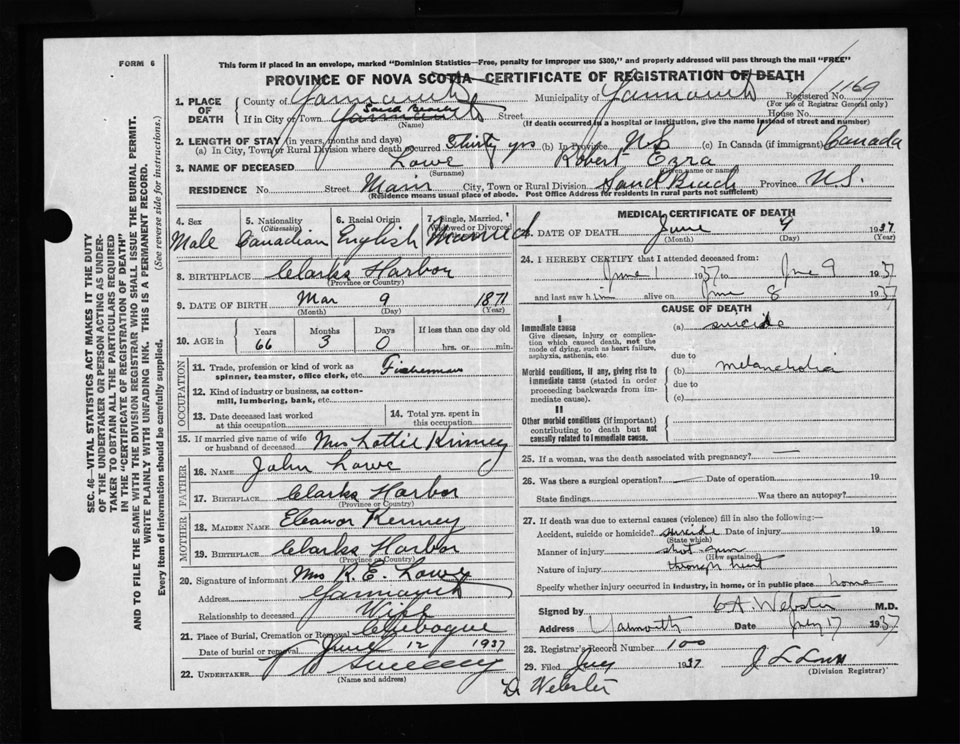 FORM 6
This form if placed in an envelope, marked "Dominion Statistics—Free, penalty for improper use $300," and properly addressed will pass through the mail "FREE"
PROVINCE OF NOVA SCOTIA—CERTIFICATE OF REGISTRATION OF DEATH
1. PLACE OF DEATH
County of Yarmouth Municipality of Yarmouth Registered No. 1169
(For use of Registrar General only)
Sand Beach
If in City or Town Yarmouth Street House No.
(Name) (If death occurred in a hospital or institution, give the name instead of street and number)
2. LENGTH OF STAY (in years, months and days)
(a) In City, Town or Rural Division where death occurred Thirty yrs (b) In Province N S (c) In Canada (if immigrant) Canada
3. NAME OF DECEASED Lowe Robert Ezra
(Surname) (Given name or names)
RESIDENCE No. Street Main City, Town or Rural Division Sand Beach Province N.S.
(Residence means usual place of abode. Post Office Address for residents in rural parts not sufficient)
4. Sex Male
5. Nationality (Citizenship) Canadian
6. Racial Origin English
7. Single, Married, Widowed or Divorced Married
8. BIRTHPLACE Clarks Harbor
(Province or Country)
9. DATE OF BIRTH Mar 9 1871
(Month) (Day) (Year)
10. AGE in Years Months Days If less than one day old
66 3 0 hrs. or min.
OCCUPATION
11. Trade, profession or kind of work as spinner, teamster, office clerk, etc. Fisherman
12. Kind of industry or business, as cotton-mill, lumbering, bank, etc.
13. Date deceased last worked at this occupation
14. Total yrs. spent in this occupation
15. If married give name of wife or husband of deceased Mrs Lottie Kinney
FATHER
16. NAME John Lowe
17. BIRTHPLACE Clarks Harbor
(Province or Country)
MOTHER
18. MAIDEN NAME Eleanor Kenney
19. BIRTHPLACE Clarks Harbor
(Province or Country)
20. Signature of informant Mrs R. E. Lowe
Address Yarmouth
Relationship to deceased Wife
21. Place of Burial, Cremation or Removal Chebogue
Date of burial or removal June 12 1937
22. UNDERTAKER Sweeney
(Name and address)
MEDICAL CERTIFICATE OF DEATH
DATE OF DEATH June 9 1937
(Month) (Day) (Year)
24. I HEREBY CERTIFY that I attended deceased from:
June 1 1937 to June 9 1937
and last saw him alive on June 8 1937
CAUSE OF DEATH
I
Immediate cause (a) suicide
Give disease, injury or complication which caused death, not the mode of dying, such as heart failure, asphyxia, asthenia, etc.
due to
Morbid conditions, if any, giving rise to immediate cause (stated in order proceeding backwards from immediate cause). (b) melancholia
due to
(c)
II
Other morbid conditions (if important) contributing to death but not causally related to immediate cause.
25. If a woman, was the death associated with pregnancy? —
26. Was there a surgical operation? — Date of operation 19
State findings Was there an autopsy?
27. If death was due to external causes (violence) fill in also the following:—
Accident, suicide or homicide? suicide Date of injury 19
(State which)
Manner of injury shot gun
(How sustained)
Nature of injury through heart
Specify whether injury occurred in industry, in home, or in public place home
Signed by C A. Webster M.D.
Address Yarmouth Date July 17 1937
28. Registrar's Record Number 100
29. Filed July 1937
(Division Registrar)
Dr Webster
SEC. 46—VITAL STATISTICS ACT MAKES IT THE DUTY
OF THE UNDERTAKER OR PERSON ACTING AS UNDER-
TAKER TO OBTAIN ALL THE PARTICULARS REQUIRED
IN THE "CERTIFICATE OF REGISTRATION OF DEATH"
AND TO FILE THE SAME WITH THE DIVISION REGISTRAR WHO SHALL ISSUE THE BURIAL PERMIT.
WRITE PLAINLY WITH UNFADING INK. THIS IS A PERMANENT RECORD.
Every item of information should be carefully supplied. (See reverse side for instructions.)